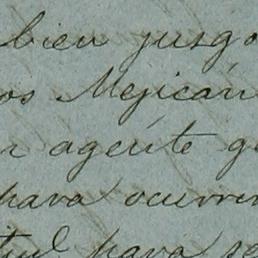 bien jusgo
os Mejican
agente g
para ocurrir
para se